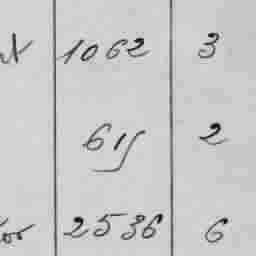 1062 3
615 2
2536 6